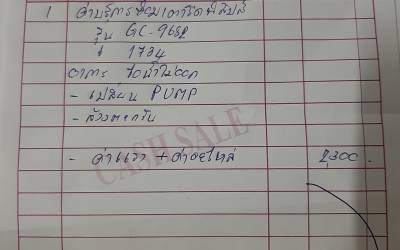 1 ค่าบริการซ่อมเตารีดฟิลิปส์
รุ่น GC-9682
1734
อาการ ฉีดน้ำไม่ออก
- เปลี่ยน PUMP
- ล้างตะกรัน
CASH SALE
- ค่าแรง + ค่าอะไหล่ 2,300.